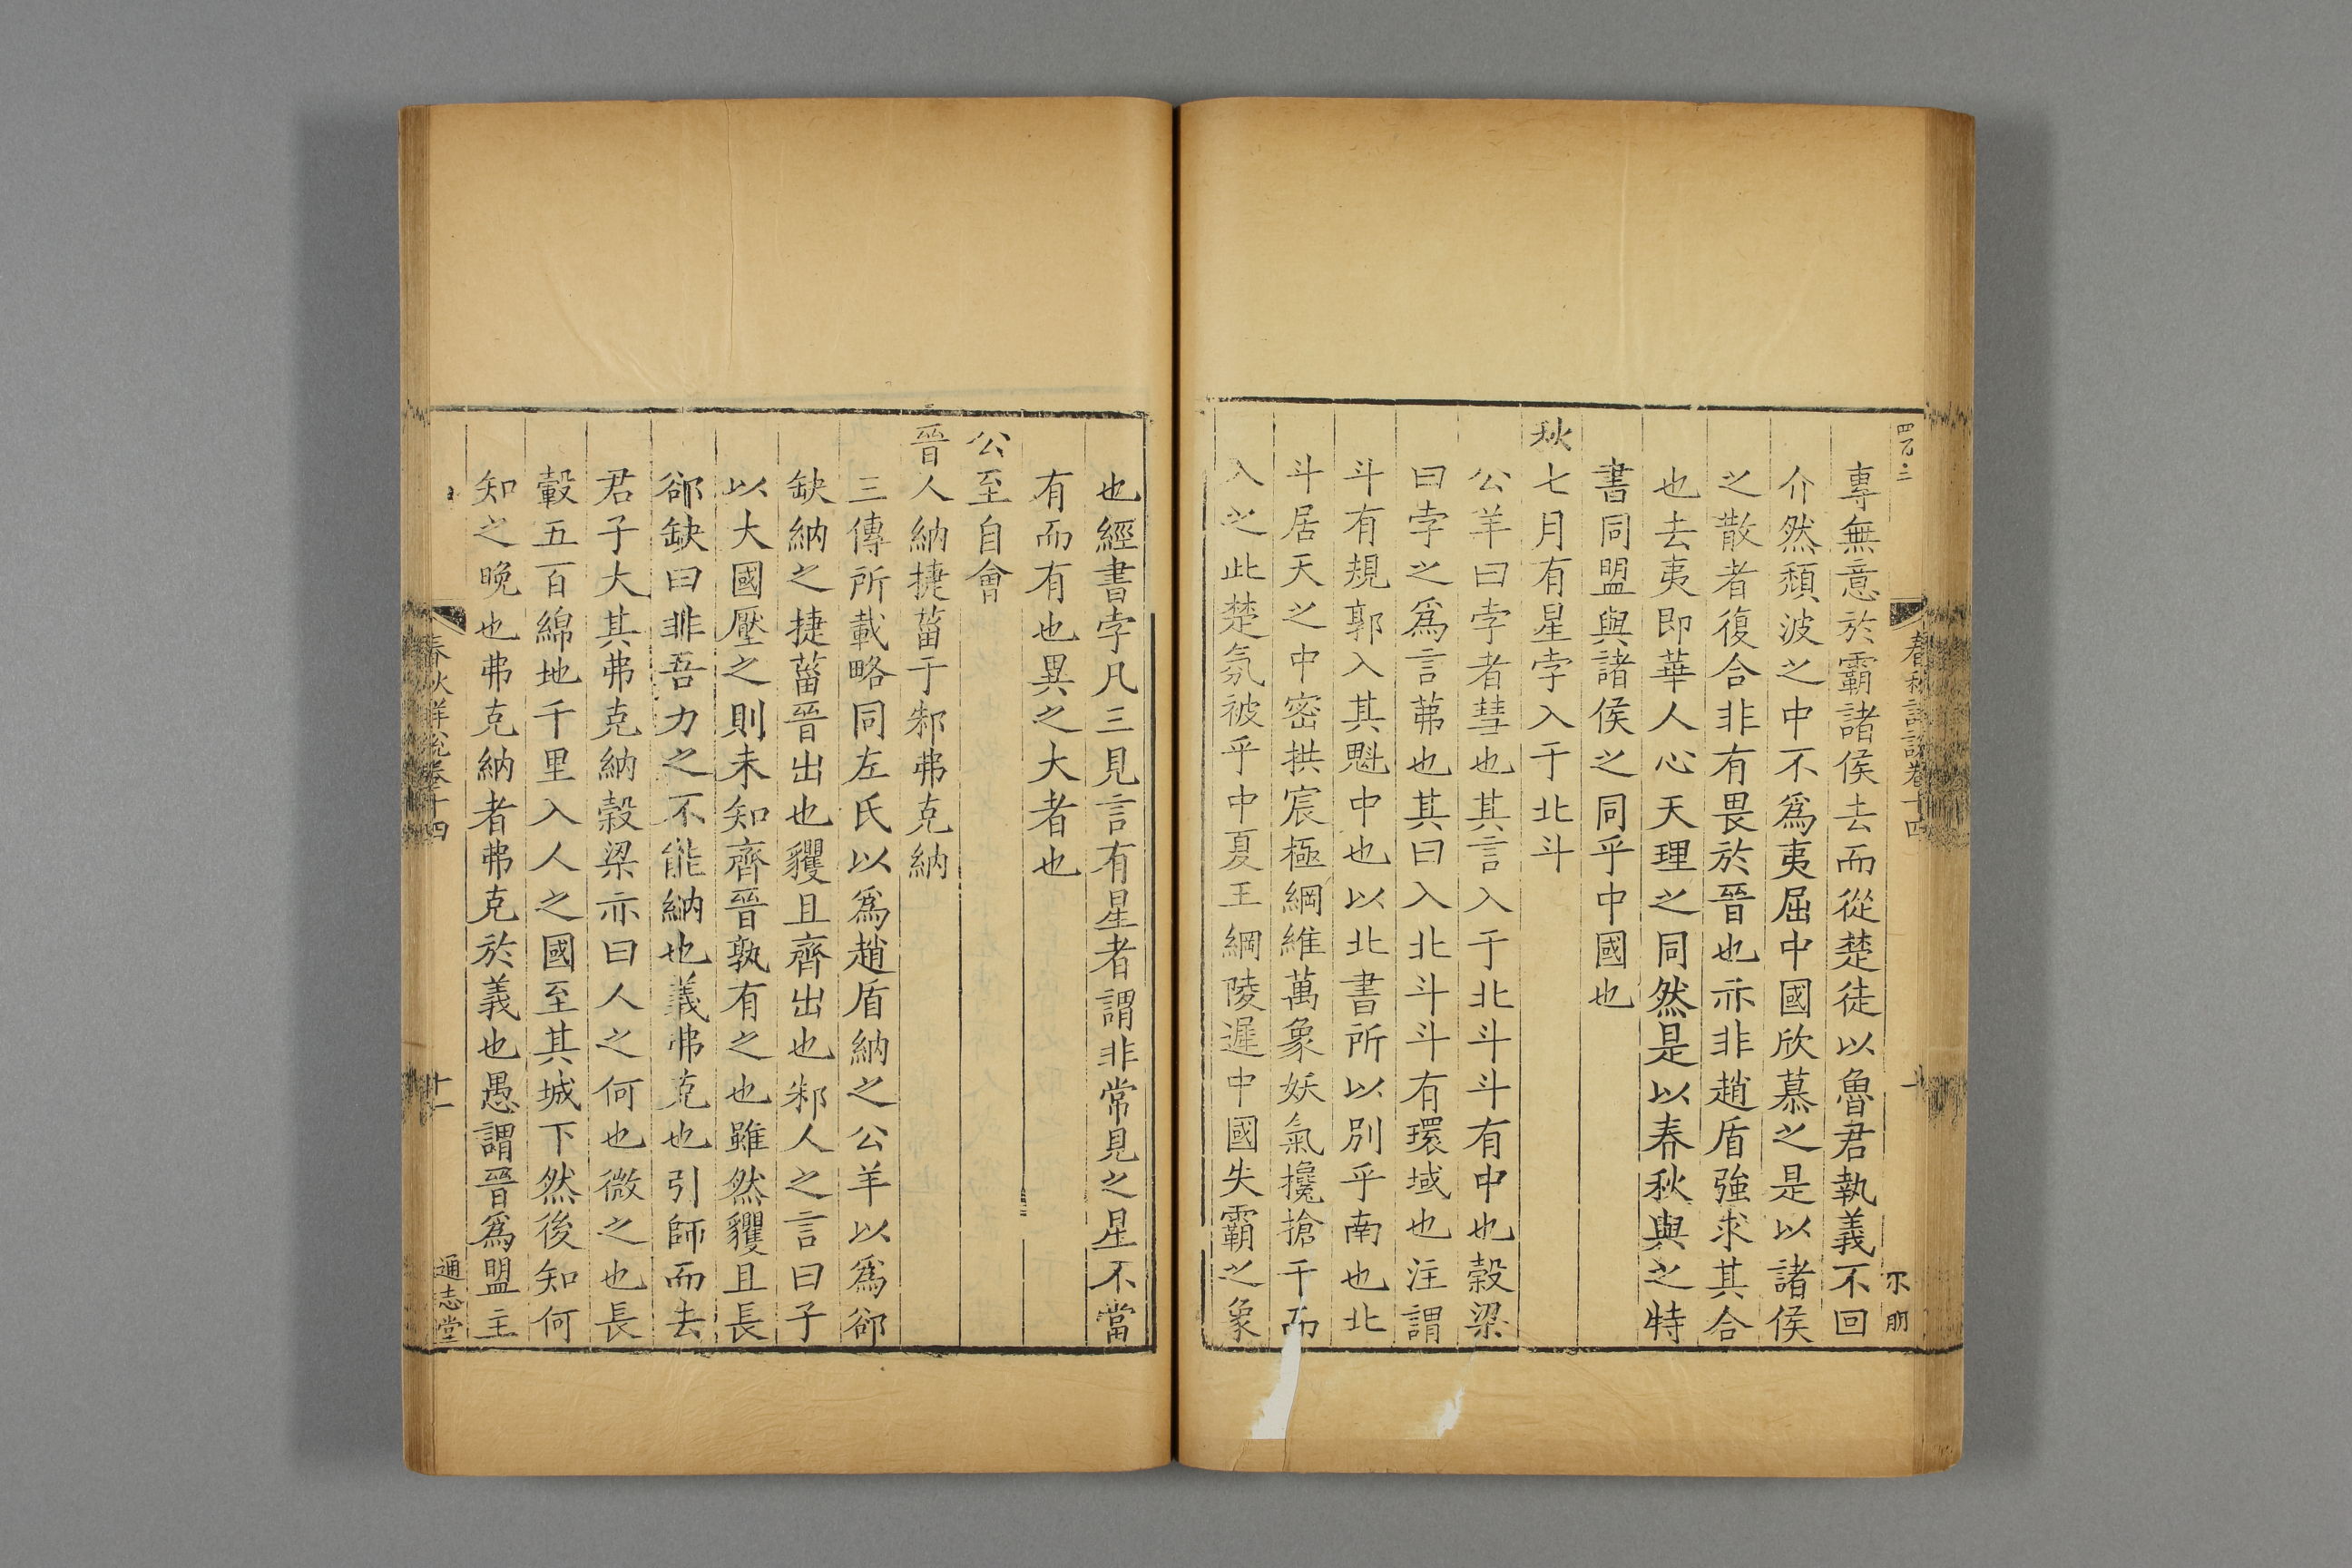 四百三
春秋詳說卷十四
十
不朋
專無意於霸諸侯去而從楚徒以魯君執義不回
介然頹波之中不爲夷屈中國欣慕之是以諸侯
之散者復合非有畏於晉也亦非趙盾強求其合
也去夷即華人心天理之同然是以春秋與之特
書同盟與諸侯之同乎中國也
秋七月有星孛入于北斗
公羊曰孛者彗也其言入于北斗斗有中也穀梁
曰孛之爲言茀也其曰入北斗斗有環域也注謂
斗有規郭入其魁中也以北書所以別乎南也北
斗居天之中密拱宸極綱維萬象妖氣攙搶干而
入之此楚氛被乎中夏王綱陵遲中國失霸之象
也經書孛凡三見言有星者謂非常見之星不當
有而有也異之大者也
公至自會
晉人納捷菑于邾弗克納
三傳所載略同左氏以爲趙盾納之公羊以爲郤
缺納之捷菑晉出也貜且齊出也邾人之言曰子
以大國壓之則未知齊晉孰有之也雖然貜且長
郤缺曰非吾力之不能納也義弗克也引師而去
君子大其弗克納穀梁亦曰人之何也微之也長
轂五百綿地千里入人之國至其城下然後知何
知之晚也弗克納者弗克於義也愚謂晉爲盟主
春秋詳說卷十四
十一
通志堂